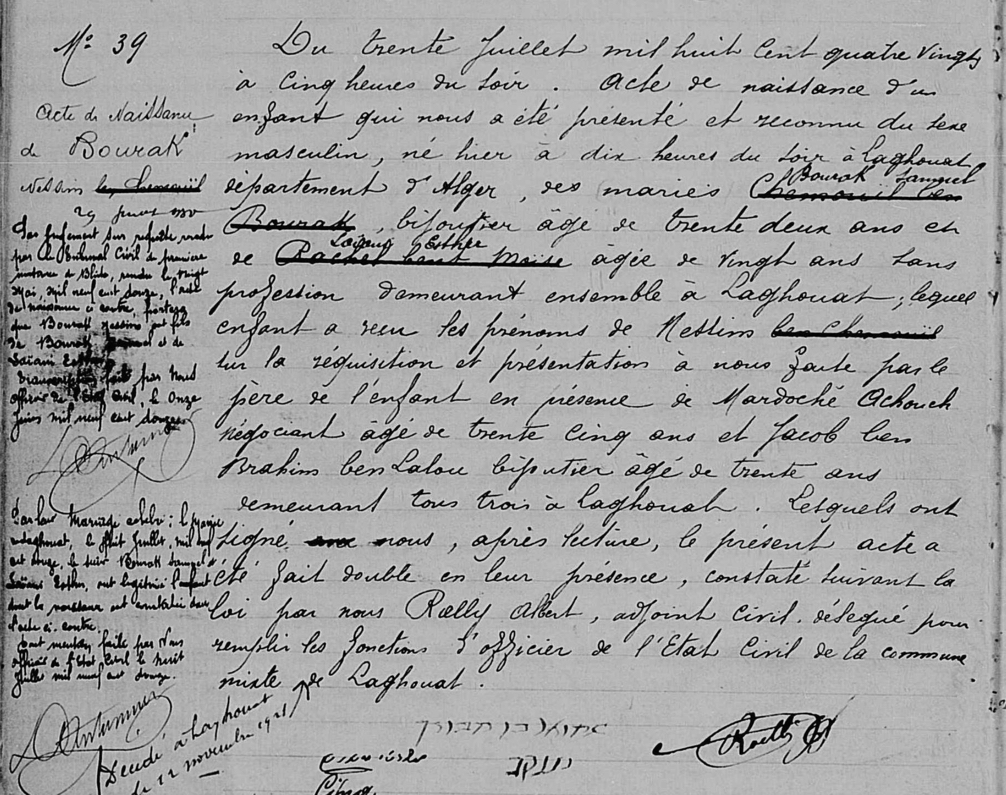 No 39
Acte de Naissance
de Bourak
Nessim ben Chemouïl
29 juillet 1880
Par jugement sur requête rendu
par le Tribunal Civil de première
instance de Blida, rendu le vingt
Mai, mil neuf cent douze, l'acte
de naissance ci contre, portera
que Bourak Nessim est fils
de Bourak Samuel et de
Saïani Esther
Transcription fait par Nous
officier de l'Etat Civil, le Onze
Juin mil neuf cent douze
Par leur Mariage célébré à la Mairie
de Laghouat, le Juillet, mil neuf
cent douze, le sieur Bourak Samuel &
Saïani Esther, ont légitimé l'enfant
dont la naissance est constatée dans
l'acte ci-contre.
Dont mention faite par Nous
officier de l'Etat Civil le
Juillet mil neuf cent douze.
Décédé à Laghouat
le 12 novembre 1921
Du trente Juillet mil huit cent quatre vingts
à cinq heures du soir. Acte de naissance d'un
enfant qui nous a été présenté et reconnu du sexe
masculin, né hier à dix heures du soir à Laghouat
Bourak Samuel
département d'Alger, des mariés Chemouïl ben
Bourak, bijoutier âgé de trente deux ans et
Esther
de Rachel bent Moïse âgée de vingt ans sans
profession demeurant ensemble à Laghouat; lequel
enfant a reçu les prénoms de Nessim ben Chemouïl
sur la réquisition et présentation à nous faite par le
père de l'enfant en présence de Mardoché Achouch
négociant âgé de trente cinq ans et Jacob ben
Brahim ben Lalou bijoutier âgé de trente ans
demeurant tous trois à Laghouat. Lesquels ont
signé avec nous, après lecture, le présent acte a
été fait double en leur présence, constaté suivant la
loi par nous Rœlly Albert, adjoint civil délégué pour
remplir les fonctions d'officier de l'Etat Civil de la commune
mixte de Laghouat.